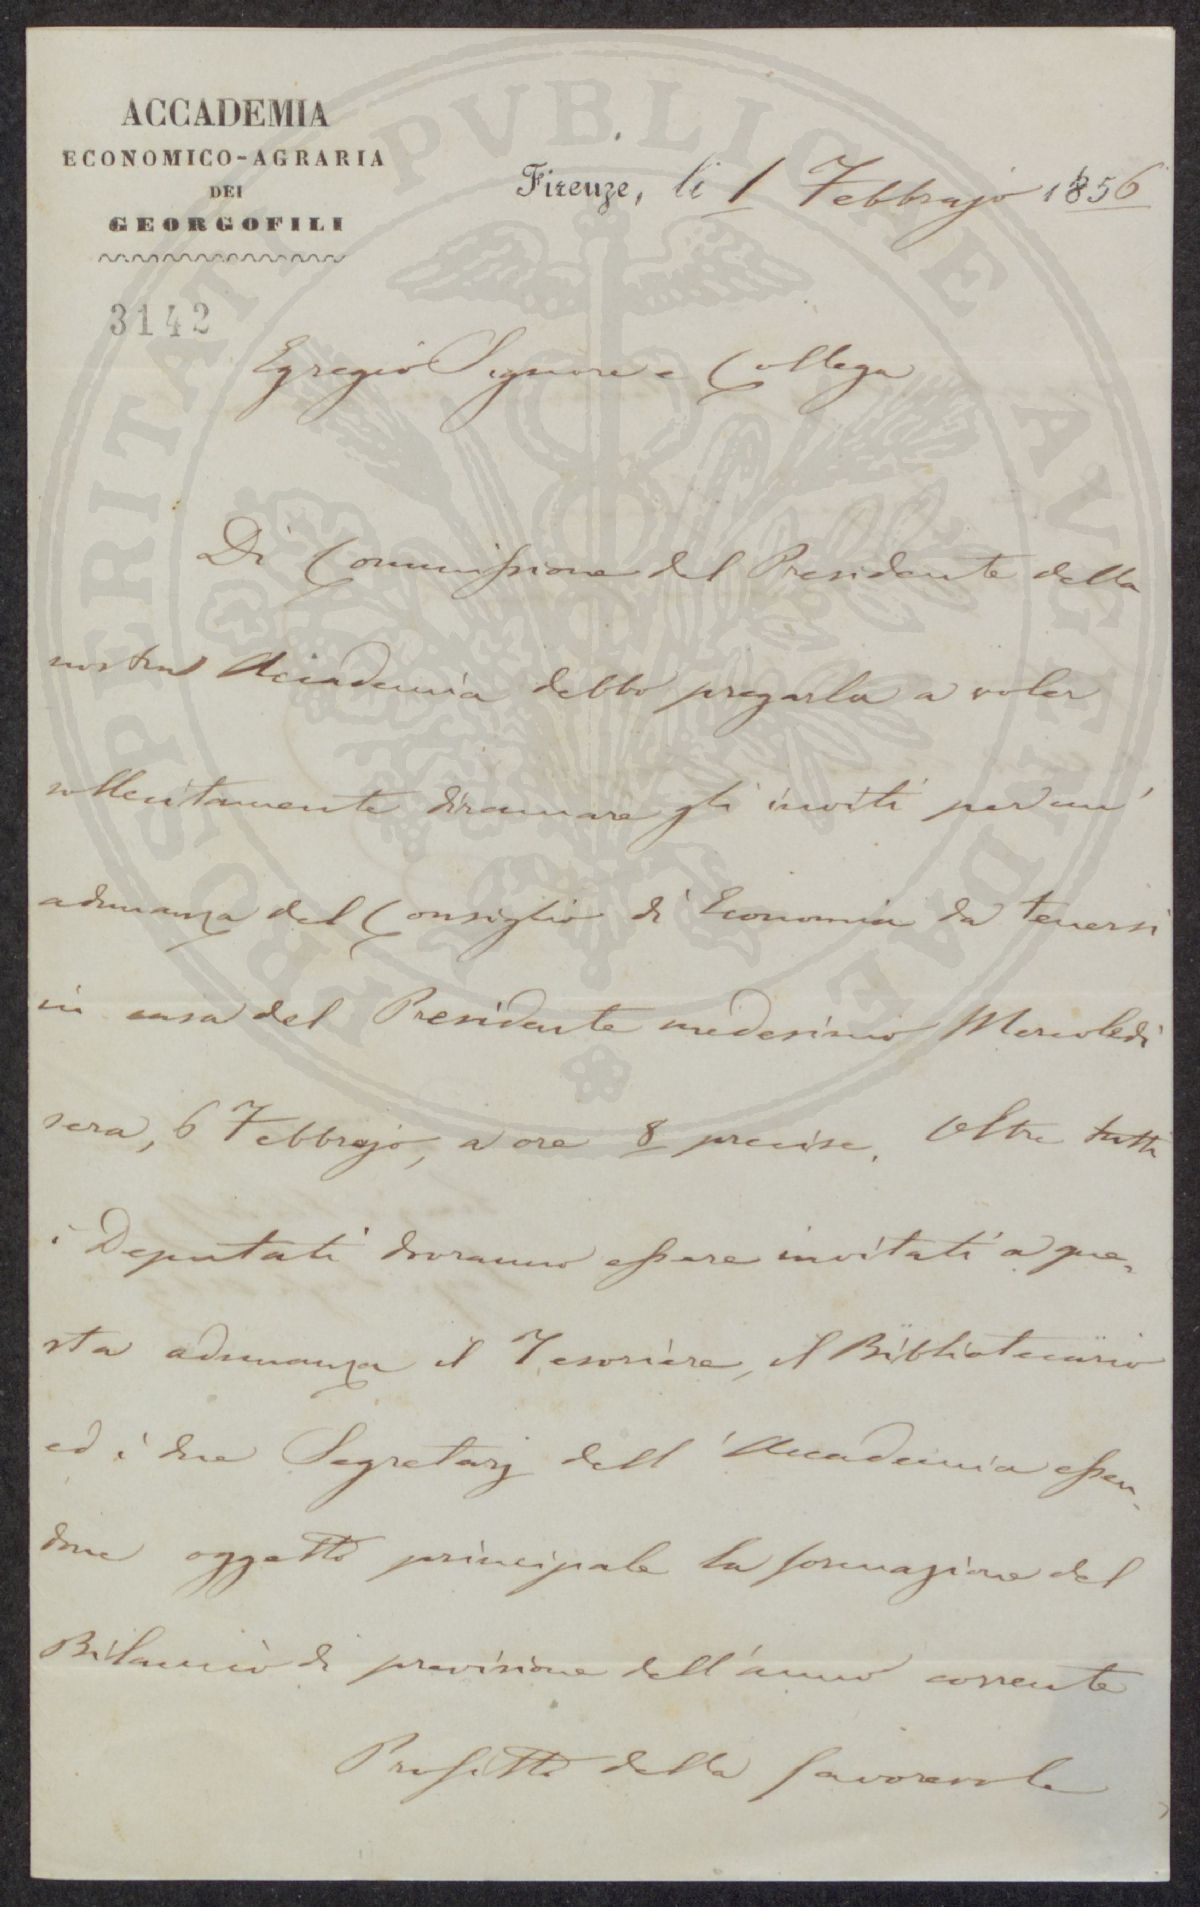 ACCADEMIA
ECONOMICO-AGRARIA
DEI
GEORGOFILI
Firenze, li 1 Febbrajo 1856
3142
Egregio Signore e Collega
Di Commissione del Presidente della
nostra Accademia debbo pregarla a voler
sollecitamente diramare gli inviti per un'
adunanza del Consiglio di Economia da tenersi
in casa del Presidente medesimo Mercoledì
sera, 6 Febbrajo, a ore 8 precise. Oltre tutti
i Deputati dovranno essere invitati a que-
sta adunanza il Tesoriere, il Bibliotecario
ed i due Segretarj dell'Accademia essen-
done oggetto principale la formazione del
Bilancio di previsione dell'anno corrente
Profitto della favorevole
PROSPERITATI PVBLICAE AVGENDAE